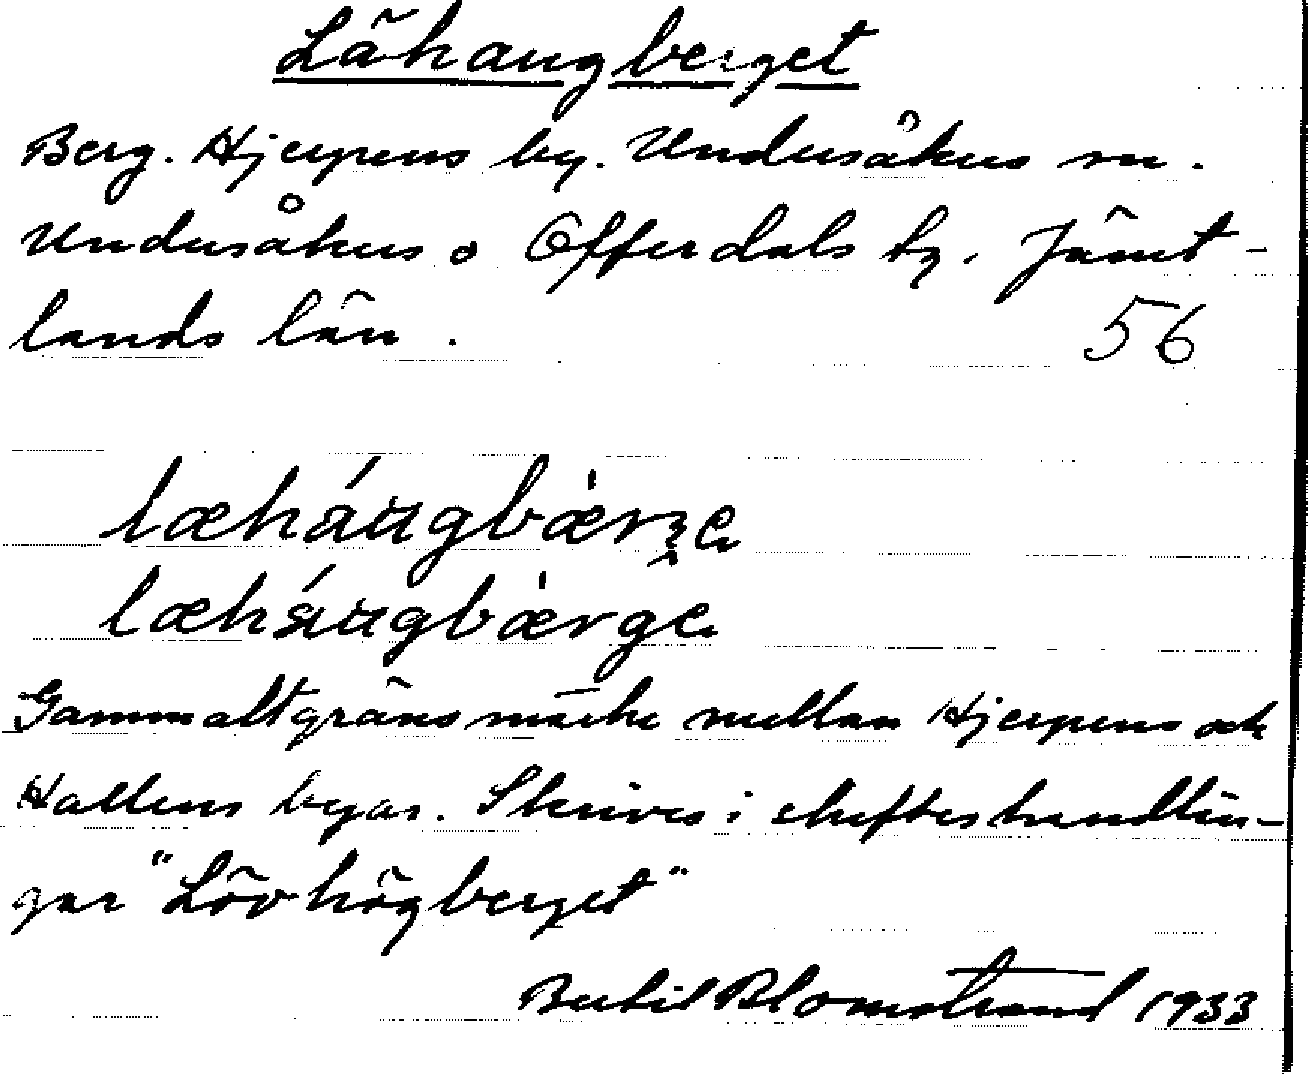 Lähangberget
Berg. Hjerpens by. Undersåkers sn.
Undersåkers o Offerdals tg. Jämt-
lands län. 56
læhángbærge
læhángbærge
Gammalt gränsmärke mellan Hjerpens och
Hallens byar. Skrives i skifteshandlin-
gar "Lövhögberget"
Bertil Blomstrand 1933